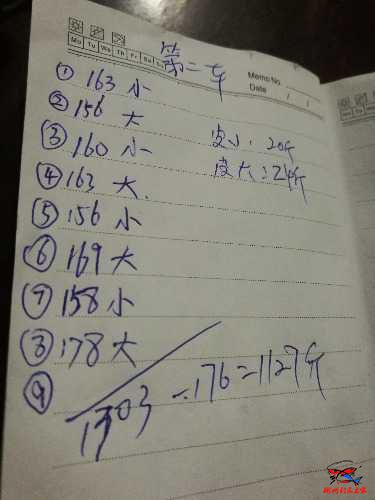 第二车
Mo Tu We Th Fr Sa Su
Memo No.
Date / /
① 163 小
② 156 大
③ 160 小
皮小:20斤
④ 163 大
皮大:24斤
⑤ 156 小
⑥ 169 大
⑦ 158 小
⑧ 178 大
⑨
1303-176=1127斤